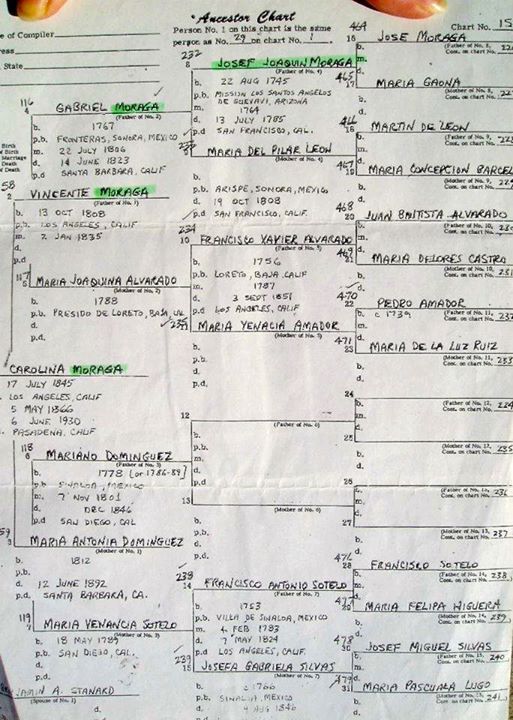 Ancestor Chart
Person No. 1 on this chart is the same
person as No. 29 on chart No. 1.
Chart No. 15
e of Compiler
ress
State
116
4
GABRIEL MORAGA
(Father of No. 2)
b. 1767
p.b. FRONTERAS, SONORA, MEXICO
m. 22 JULY 1806
d. 14 JUNE 1823
p.d SANTA BARBARA, CALIF
Birth
of Birth
Marriage
Death
of Death
58
2
VINCENTE MORAGA
(Father of No. 1)
b. 13 OCT 1808
p.b. LOS ANGELES, CALIF
m. 2 JAN 1835
d.
p.d.
117
5
MARIA JOAQUINA ALVARADO
(Mother of No. 2)
b. 1788
p.b. PRESIDO DE LORETO, BAJA, CAL
d.
p.d.
CAROLINA MORAGA
17 JULY 1845
LOS ANGELES, CALIF
5 MAY 1866
6 JUNE 1930
PASADENA, CALIF
118
6
MARIANO DOMINGUEZ
(Father of No. 3)
b. 1778 [or 1786-89]
p.b SINALOA, MEXICO
m. 7 NOV 1801
d. DEC 1846
p.d SAN DIEGO, CAL
59
3
MARIA ANTONIA DOMINGUEZ
(Mother of No. 1)
b. 1812
p.b.
d. 12 JUNE 1892
p.d. SANTA BARBARA, CA.
119
7
MARIA VENANCIA SOTELO
(Mother of No. 3)
b. 18 MAY 1789
p.b. SAN DIEGO, CAL.
d.
p.d.
JAMIN A. STANARD
(Spouse of No. 1)
232
8
JOSEF JOAQUIN MORAGA
(Father of No. 4)
b. 22 AUG 1745
p.b. MISSION LOS SANTOS ANGELOS
DE GUEVAVI, ARIZONA
m. 1764
d. 13 JULY 1785
p.d SAN FRANCISCO, CAL.
9
MARIA DEL PILAR LEON
(Mother of No. 4)
b.
p.b. ARISPE, SONORA, MEXICO
d. 19 OCT 1808
p.d SAN FRANCISCO, CALIF
234
10
FRANCISCO XAVIER ALVARADO
(Father of No. 5)
b. 1756
p.b. LORETO, BAJA CALIF
m. 1787
d. 3 SEPT 1851
p.d LOS ANGELES, CALIF
235
MARIA YENACIA AMADOR
(Mother of No. 5)
b.
p.b.
d.
p.d.
12
(Father of No. 6)
b.
p.b.
m.
d.
p.d
13
(Mother of No. 6)
b.
p.b.
d.
p.d.
238
14
FRANCISCO ANTONIO SOTELO
(Father of No. 7)
b. 1753
p.b. VILLA DE SINALOA, MEXICO
m. 4 FEB 1783
d. 7 MAY 1824
p.d LOS ANGELES, CALIF
239
15
JOSEFA GABRIELA SILVAS
(Mother of No. 7)
b. c 1766
p.b. SINALOA, MEXICO
d. 4 AUG 1846
464
16
JOSE MORAGA
(Father of No. 8,
Cont. on chart No.
b.
m.
d.
465
17
MARIA GAONA
(Mother of No. 8,
Cont. on chart No.
b.
d.
466
18
MARTIN DE LEON
(Father of No. 9,
Cont. on chart No.
b.
m.
d.
467
19
MARIA CONCEPTION BARCEL
(Mother of No. 9,
Cont. on chart No.
b.
d.
468
20
JUAN BAUTISTA ALVARADO
(Father of No. 10,
Cont. on chart No.
b.
m.
d.
469
21
MARIA DELORES CASTRO
(Mother of No. 10,
Cont. on chart No.
b.
d.
470
22
PEDRO AMADOR
(Father of No. 11,
Cont. on chart No.
b. c 1739
m.
d.
471
23
MARIA DE LA LUZ RUIZ
(Mother of No. 11,
Cont. on chart No.
b.
d.
24
(Father of No. 12,
Cont. on chart No.
b.
m.
d.
25
(Mother of No. 12,
Cont. on chart No. 235
b.
d.
26
Cont. on chart No. 236
b.
m.
d.
27
(Mother of No. 13,
Cont. on chart No. 237
b.
d.
476
28
FRANCISCO SOTELO
(Father of No. 14,
Cont. on chart No. 238
b.
m.
d.
477
29
MARIA FELIPA HIGUERA
(Mother of No. 14,
Cont. on chart No. 239
b.
d.
478
30
JOSEF MIGUEL SILVAS
(Father of No. 15,
Cont. on chart No. 240
b.
m.
d.
479
31
MARIA PASCUALA LUGO
(Mother of No. 15,
Cont. on chart No. 241
b.
d.